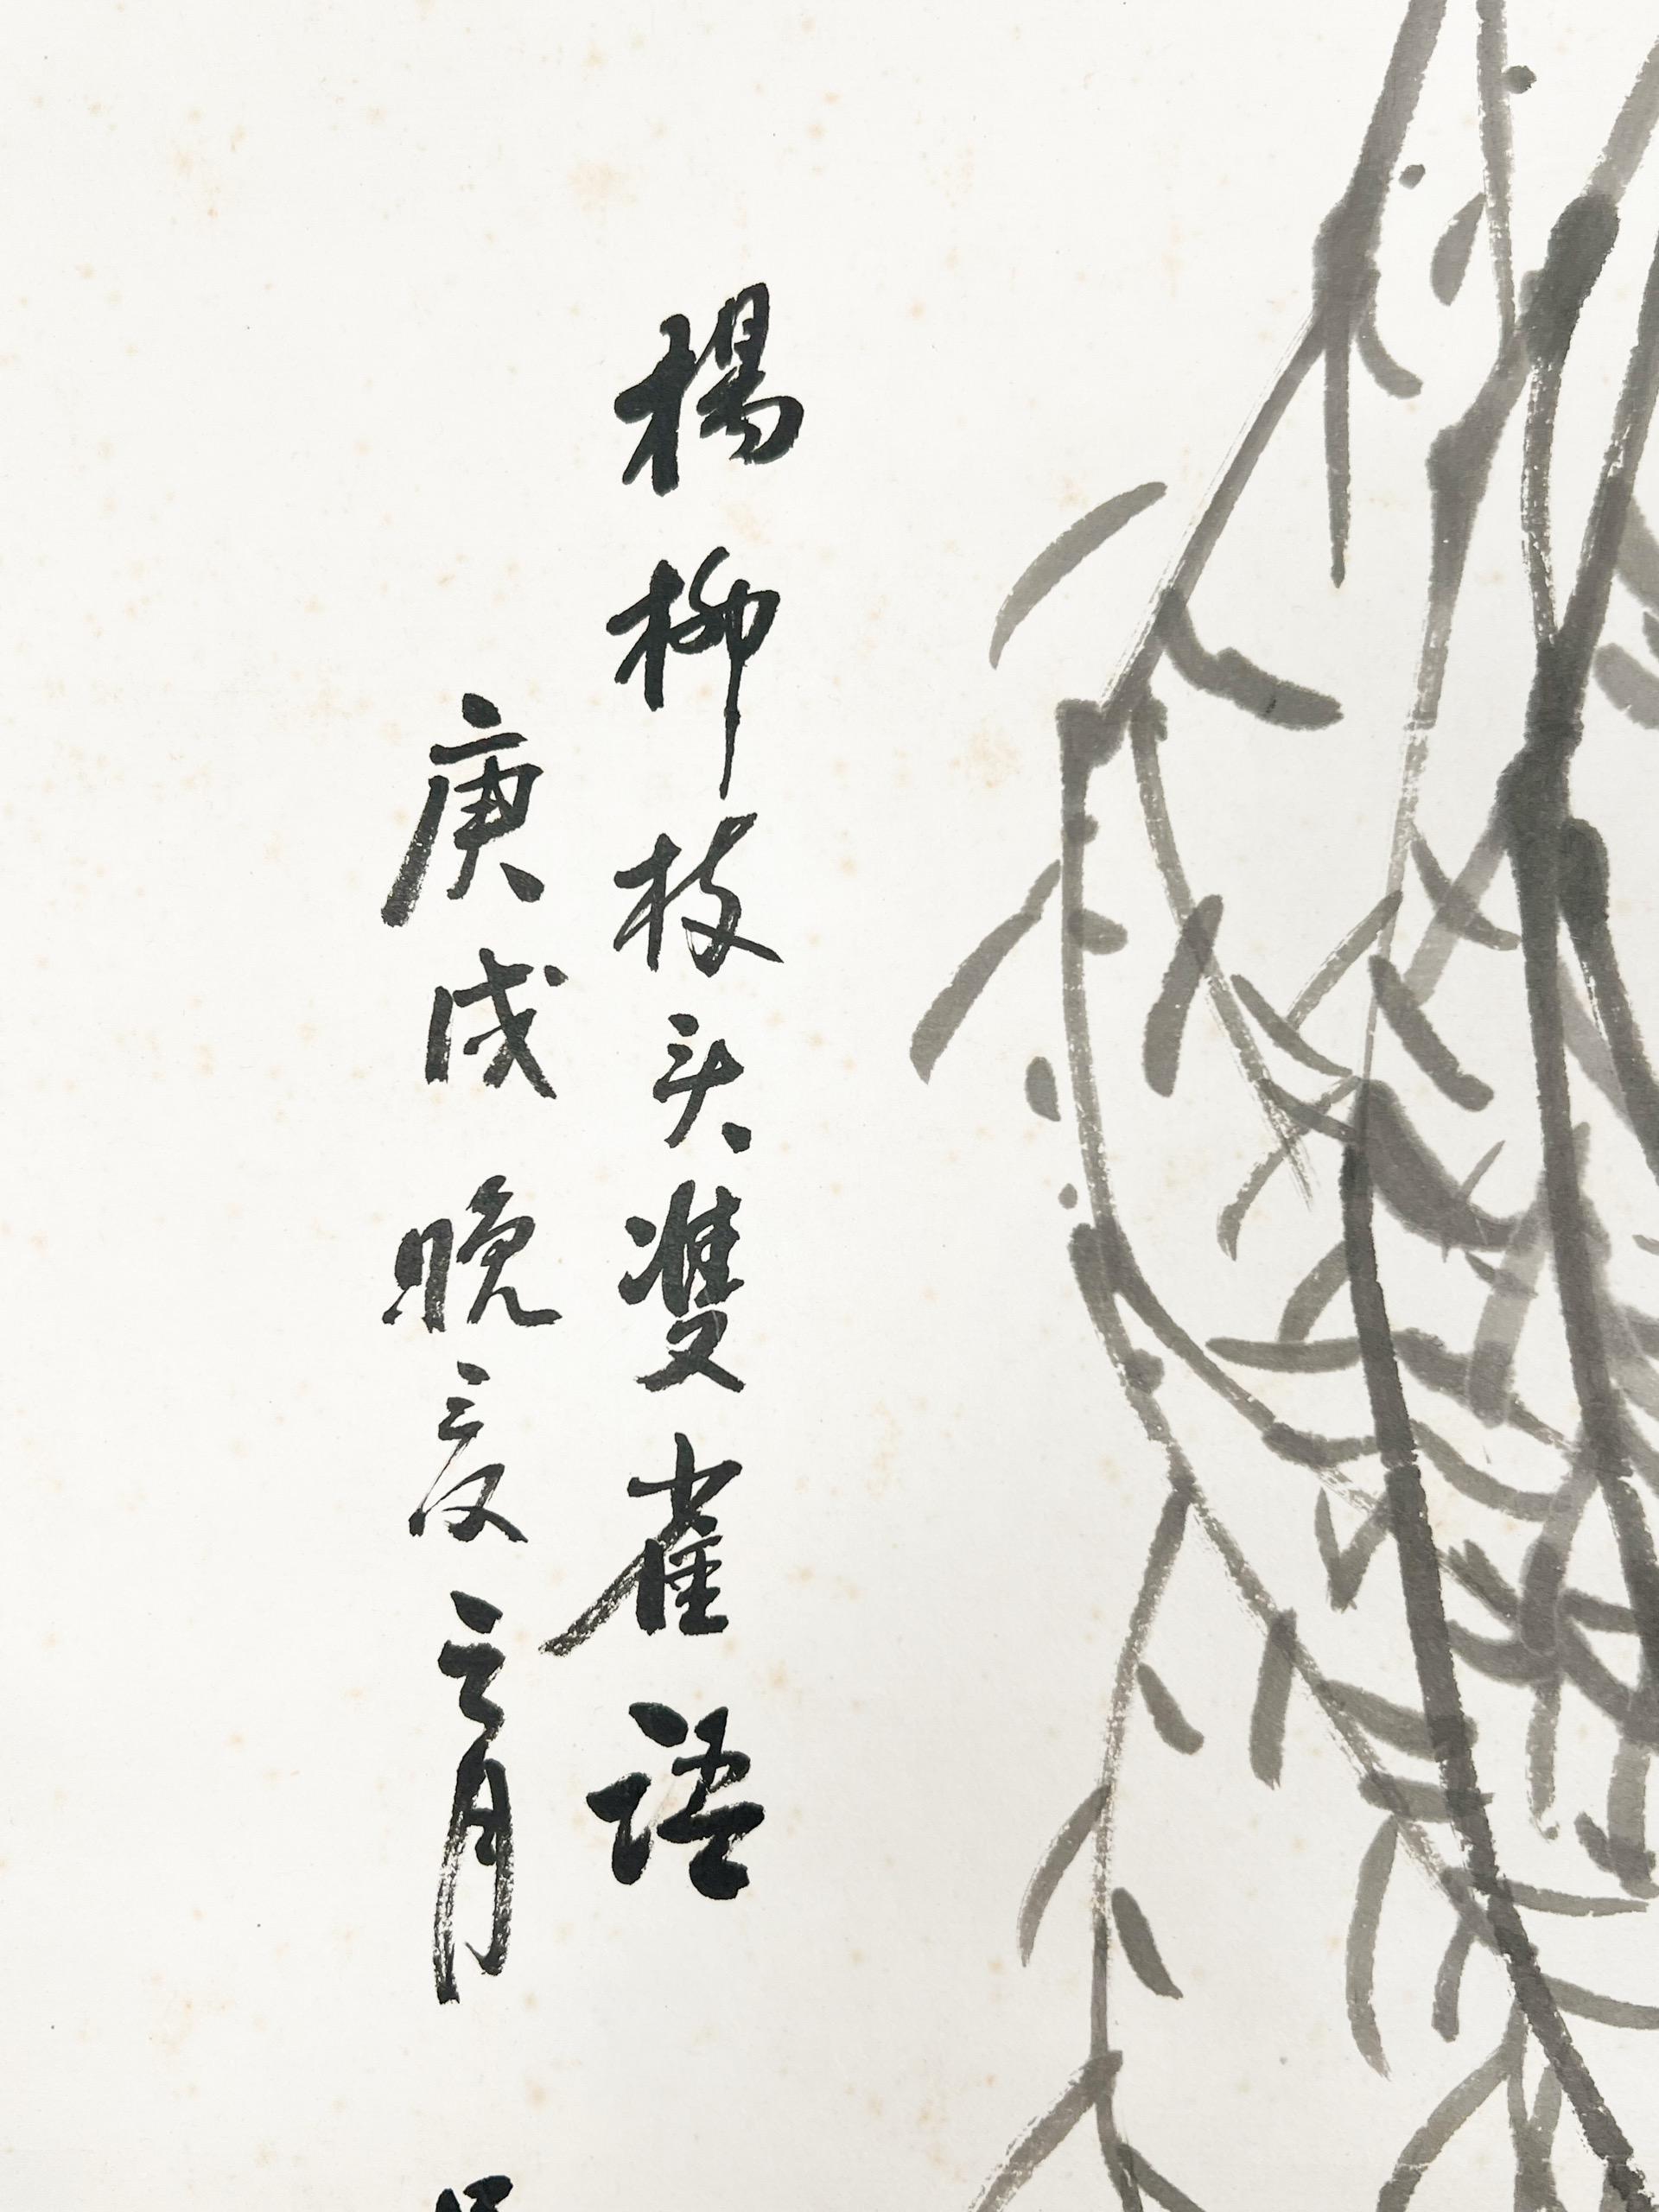 楊柳枝头雙雀語
庚戌晚夏之月